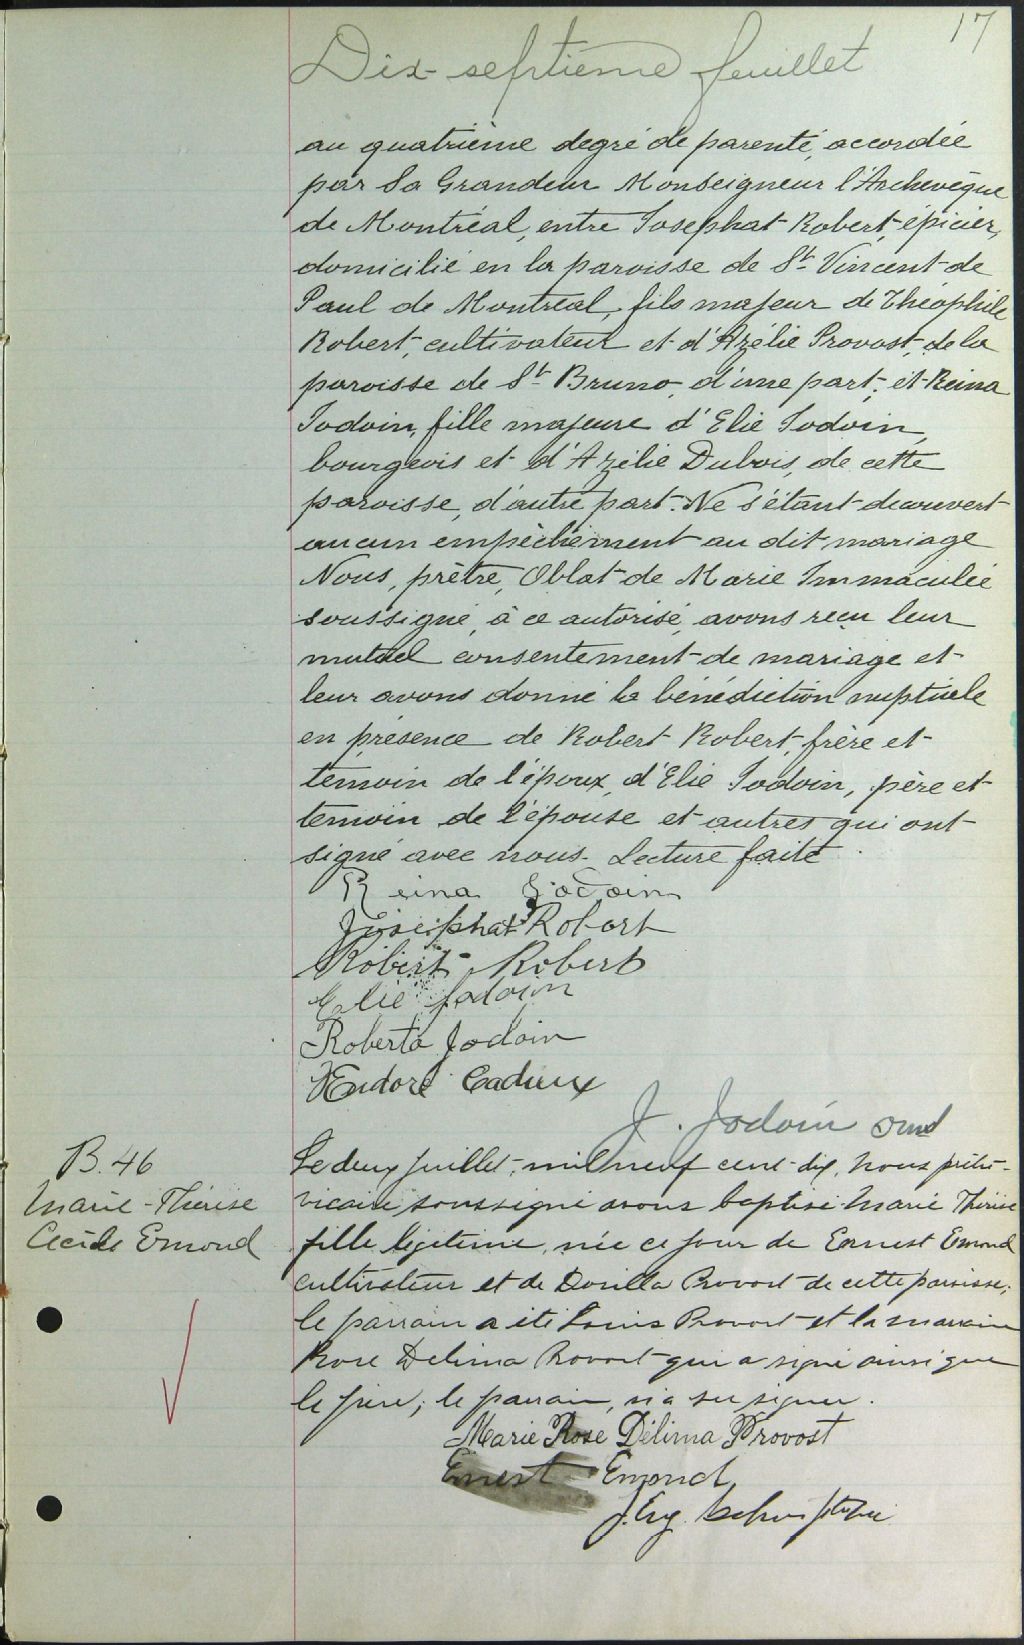 17
Dix-septième feuillet
au quatrième degré de parenté, accordée
par Sa Grandeur Monseigneur l'Archevêque
de Montréal, entre Josephat Robert, épicier,
domicilié en la paroisse de St. Vincent de
Paul de Montréal, fils majeur de Théophile
Robert, cultivateur et d'Azélie Provost, de la
paroisse de St. Bruno, d'une part; et Reina
Jodoin, fille majeure d'Elie Jodoin,
bourgeois et d'Azélie Dubois, de cette
paroisse, d'autre part. Ne s'étant découvert
aucun empêchement au dit mariage
Nous, prêtre, Oblat de Marie Immaculée
soussigné, à ce autorisé, avons reçu leur
mutuel consentement de mariage et
leur avons donné la bénédiction nuptiale
en présence de Robert Robert, frère et
témoin de l'époux, d'Elie Jodoin, père et
témoin de l'épouse et autres qui ont
signé avec nous. Lecture faite.
Reina Jodoin
Josephat Robert
Robert Robert
Elie Jodoin
Roberta Jodoin
J. Jodoin omi
B. 46
Marie-Thérèse
Cécile Emond
Le deux juillet, mil neuf cent dix, nous prêtre-
vicaire soussigné avons baptisé Marie Thérèse
fille légitime, née ce jour de Ernest Emond
cultivateur et de Dorilla Provost de cette paroisse;
le parrain a été Louis Provost et la marraine
Rose Delima Provost qui a signé ainsi que
le père; le parrain, n'a su signer.
Marie Rose Délima Provost
Ernest Emond